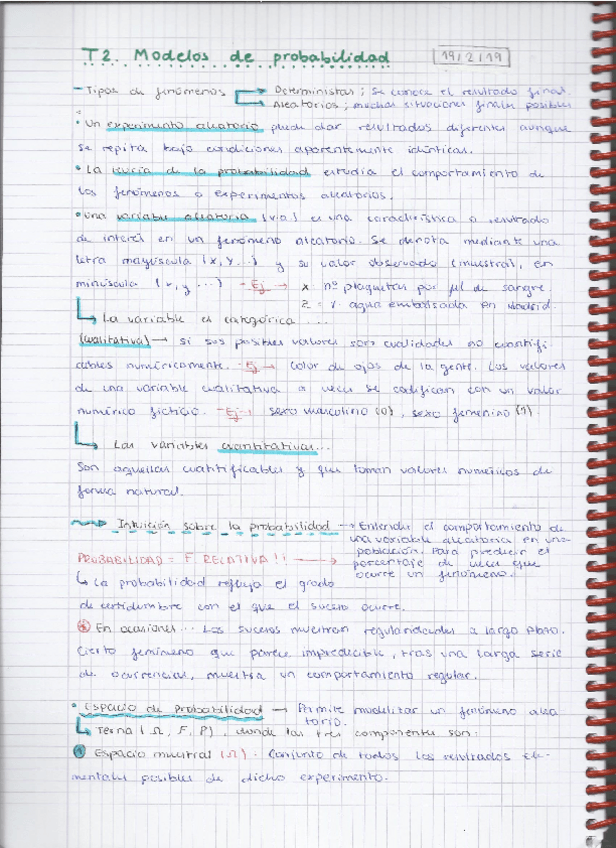 T2. Modelos de probabilidad 19/2/19
- Tipos de fenómenos → Deterministas; se conoce el resultado final.
→ Aleatorios; muchas situaciones finales posibles
• Un experimento aleatorio puede dar resultados diferentes aunque
se repita bajo condiciones aparentemente idénticas.
• La teoría de la probabilidad estudia el comportamiento de
los fenómenos o experimentos aleatorios.
• una variable aleatoria (v.a) es una característica o resultado
de interés en un fenómeno aleatorio. Se denota mediante una
letra mayúscula (X, Y...) y su valor observado (muestra), en
minúscula (x, y ...) - Ej → X: nº plaquetas por µl de sangre.
Z = agua embalsada en Madrid.
↳ La variable es categórica ....
(cualitativa) → si sus posibles valores son cualidades no cuantifi-
cables numéricamente. - Ej → Color de ojos de la gente. Los valores
de una variable cualitativa a veces se codifican con un valor
numérico ficticio. - Ej → sexo masculino (0), sexo femenino (1).
↳ Las variables cuantitativas...
Son aquellas cuantificables y que toman valores numéricos de
forma natural.
Intuición sobre la probabilidad → Entender el comportamiento de
una variable aleatoria en una
población. Para predecir el
PROBABILIDAD = F. RELATIVA!! → porcentaje de veces que
ocurre un fenómeno.
↳ La probabilidad refleja el grado
de certidumbre con el que el suceso ocurre.
En ocasiones... Los sucesos muestran regularidades a largo plazo.
Cierto fenómeno que parece impredecible, tras una larga serie
de ocurrencias, muestra un comportamiento regular.
• Espacio de probabilidad → Permite modelizar un fenómeno alea-
torio.
↳ Terna (Ω, F, P), donde las tres componentes son:
① Espacio muestral (Ω): Conjunto de todos los resultados ele-
mentales posibles de dicho experimento.